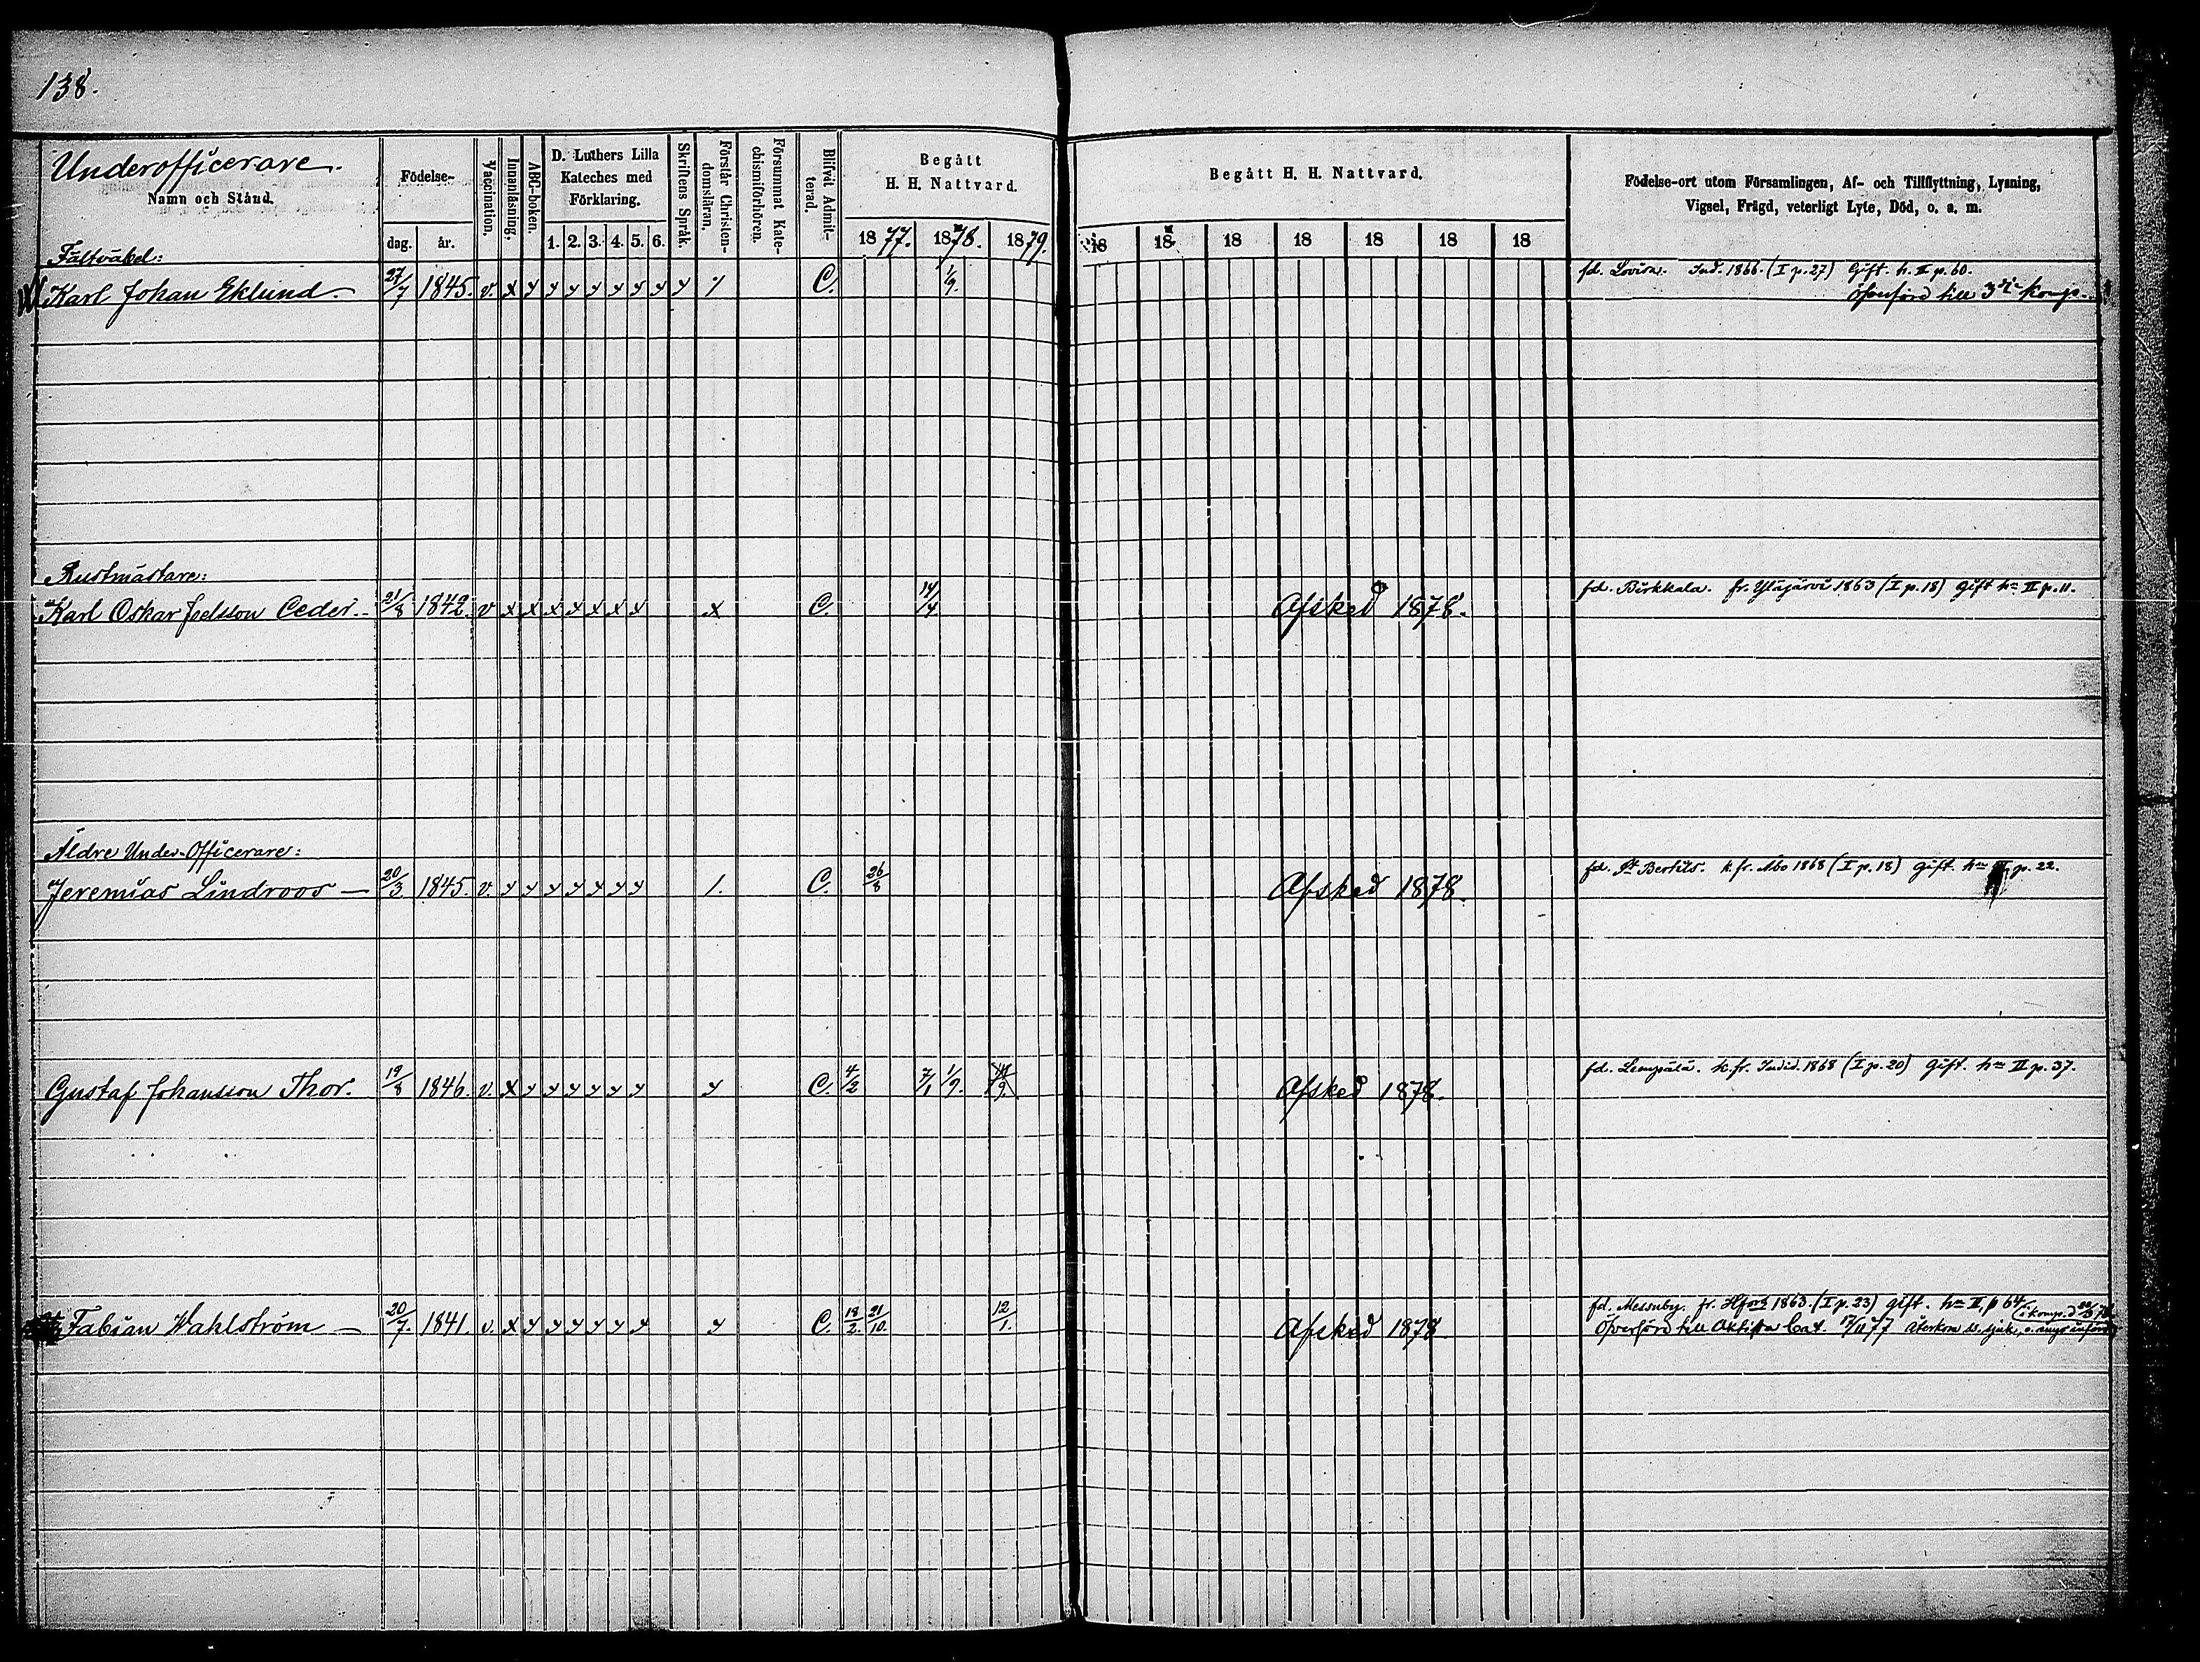 138.
Underofficerare.
Namn och Stånd.
Födelse-
dag. år.
Vaccination.
Innanläsning.
ABC-boken.
D. Luthers Lilla
Kateches med
Förklaring.
1. 2. 3. 4. 5. 6.
Skriftens Språk.
Förstår Christen-
domsläran.
Försummat Kate-
chismiförhören.
Blifvit Admit-
terad.
Begått
H. H. Nattvard.
1877. 1878. 1879.
Begått H. H. Nattvard.
18 18 18 18 18 18 18
Födelse-ort utom Församlingen, Af- och Tillflyttning, Lysning,
Vigsel, Frägd, veterligt Lyte, Död, o. s. m.
Fältväbel:
Karl Johan Eklund. 27/7 1845. v. x y y y y y y y y / C. 1/9. fd. Lovisa. Ind. 1866. (I p. 27) Gift. h. II p. 60.
Öfverförd till 3dje komp.
Rustmästare:
Karl Oskar Joelsson Ceder. 21/8 1842. v x x x x x x x C. 14/4 Afsked 1878. fd. Birkkala. fr. Ylöjärvi 1863 (I p. 18) Gift hu II p. 11.
Äldre Under-Officerare:
Jeremias Lindroos 20/3 1845. v. y y y y y y y 1. C. 26/8 Afsked 1878. fd. St Bertils. k. fr. Åbo 1868 (I p. 18) gift. hu p. 22.
Gustaf Johansson Thor. 19/8 1846. v. x y y y y y y y C. 4/2 7/1 1/9. Afsked 1878. fd. Lempälä. k. fr. Indid. 1868 (I p. 20) Gift. hu II p. 37.
Fabian Wahlström 20/7. 1841. v. x y y y y y y y C. 18/2. 21/10. 12/1. Afsked 1878 fd. Messuby. fr. Hfors 1863. (I p. 23) gift. hu II, p 64
Öfverförd till Aktiva Bat. 17/11 77 Återkom ss. sjuk, o. ånyo införd
i komp. d.